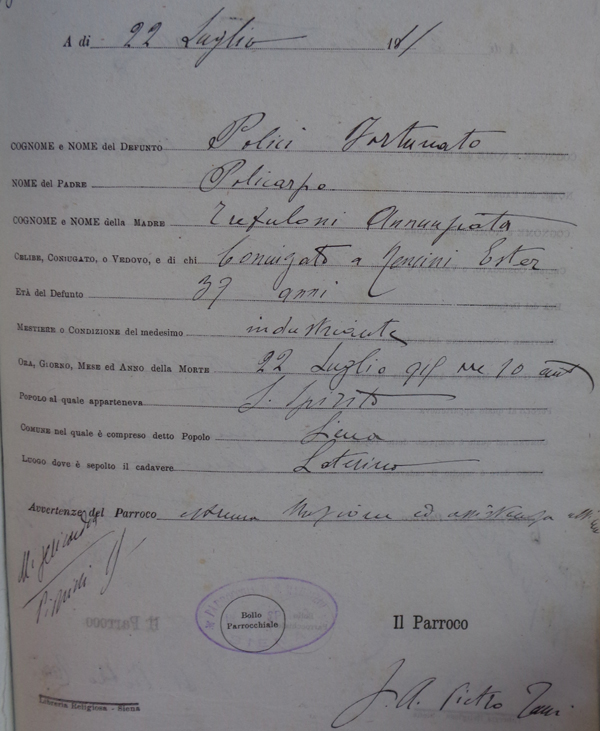 A dì 22 Luglio 191
COGNOME e NOME del DEFUNTO Polici Fortunato
NOME del PADRE Policarpo
COGNOME e NOME della MADRE Trefoloni Annunziata
CELIBE, CONIUGATO, O VEDOVO, e di chi Coniugato a Nencini Ester
ETÀ del DEFUNTO 37 anni
MESTIERE o CONDIZIONE del medesimo industriante
ORA, GIORNO, MESE ed ANNO della MORTE 22 Luglio ore 10 ant
POPOLO al quale apparteneva S. Spirito
COMUNE nel quale è compreso detto Popolo Siena
LUOGO dove è sepolto il cadavere Laterino
Avvertenze del Parroco estrema Unzione ed assistenza
Bollo
Parrocchiale
Il Parroco
Pietro
Libreria Religiosa - Siena